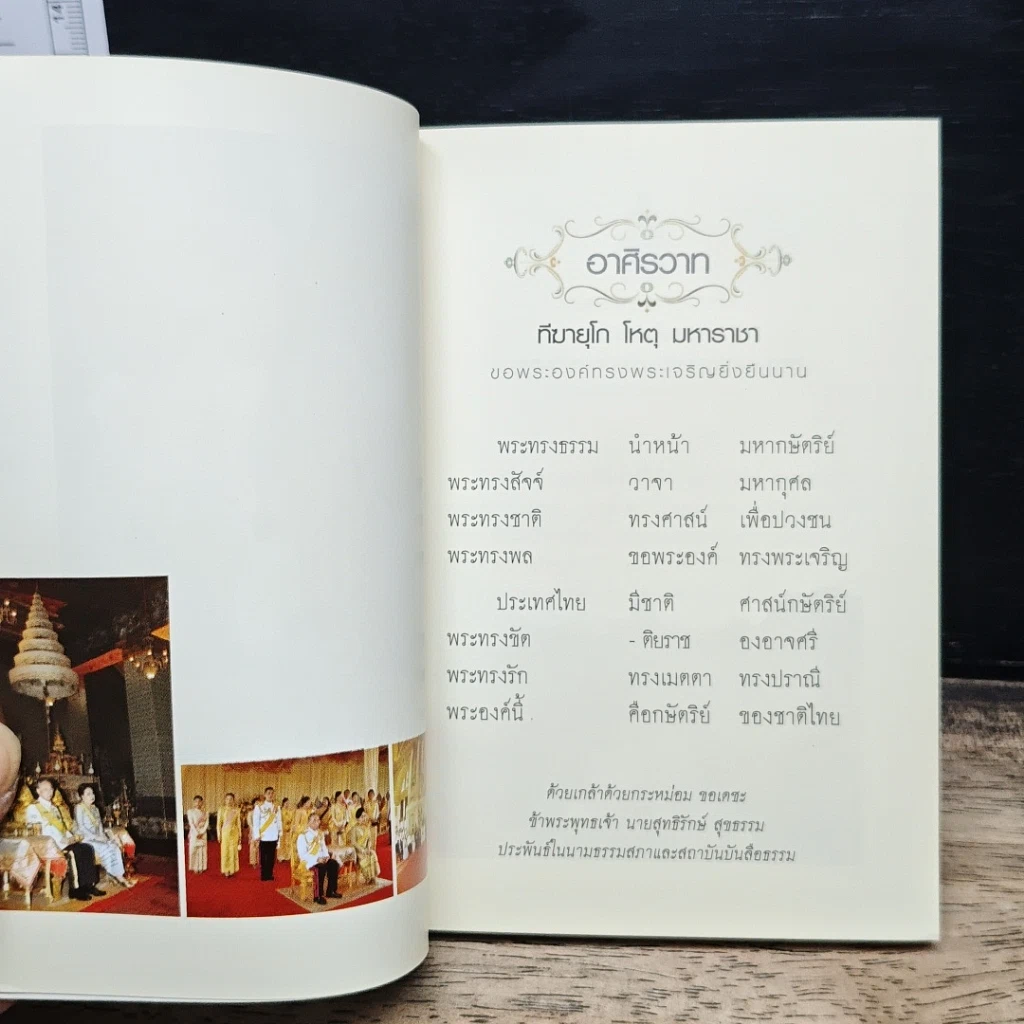 14
อาศิรวาท
ทีฆายุโก โหตุ มหาราชา
ขอพระองค์ทรงพระเจริญยิ่งยืนนาน
พระทรงธรรม นำหน้า มหากษัตริย์
พระทรงสัจจ์ วาจา มหากุศล
พระทรงชาติ ทรงศาสน์ เพื่อปวงชน
พระทรงพล ขอพระองค์ ทรงพระเจริญ
ประเทศไทย มีชาติ ศาสน์กษัตริย์
พระทรงขัต - ติยราช องอาจศรี
พระทรงรัก ทรงเมตตา ทรงปราณี
พระองค์นี้ คือกษัตริย์ ของชาติไทย
ด้วยเกล้าด้วยกระหม่อม ขอเดชะ
ข้าพระพุทธเจ้า นายสุทธิรักษ์ สุขธรรม
ประพันธ์ในนามธรรมสภาและสถาบันบันลือธรรม